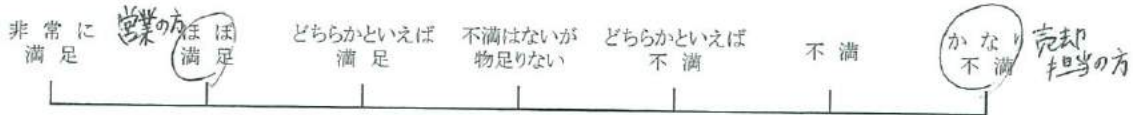 非常に満足
営業の方
ほぼ満足
どちらかといえば満足
不満はないが物足りない
どちらかといえば不満
不満
かなり不満
売却担当の方